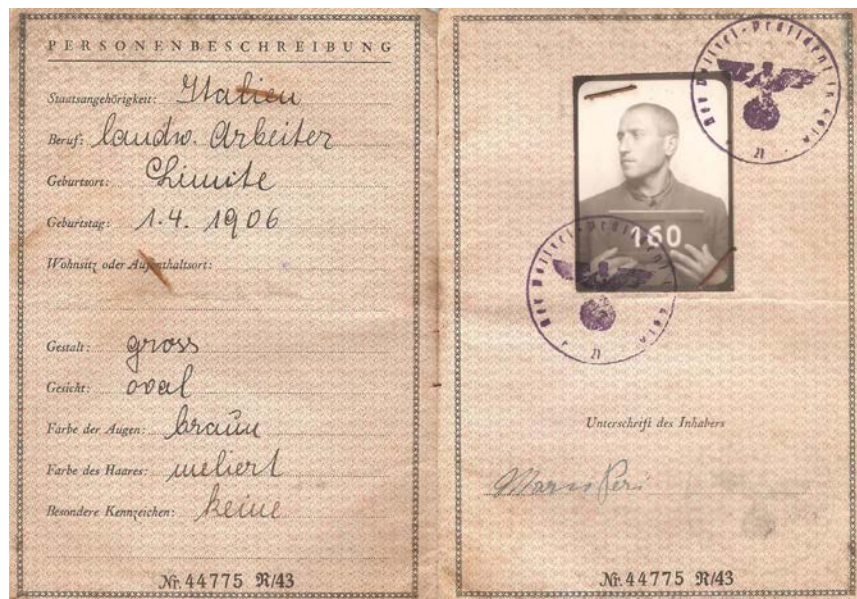 PERSONENBESCHREIBUNG
Staatsangehörigkeit: Italien
Beruf: landw. Arbeiter
Geburtsort: Chimite
Geburtstag: 1.4. 1906
Wohnsitz oder Aufenthaltsort:
Gestalt: gross
Gesicht: oval
Farbe der Augen: braun
Farbe des Haares: meliert
Besondere Kennzeichen: keine
Nr. 44775 R/43
Der Polizei-Präsident in Köln
160
Der Polizei-Präsident in Köln
Unterschrift des Inhabers
Peri
Nr. 44775 R/43